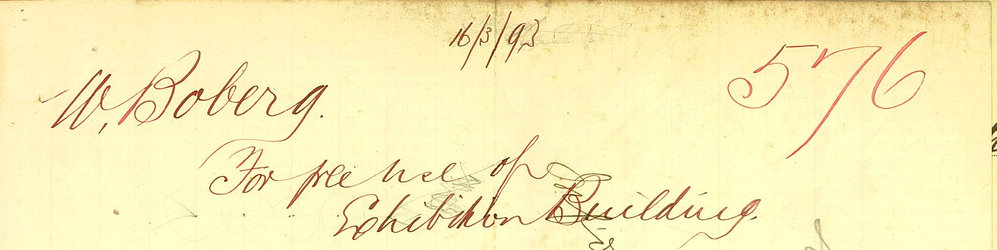 16/3/93
576
W. Boberg.
For free use of
Exhibition Building.